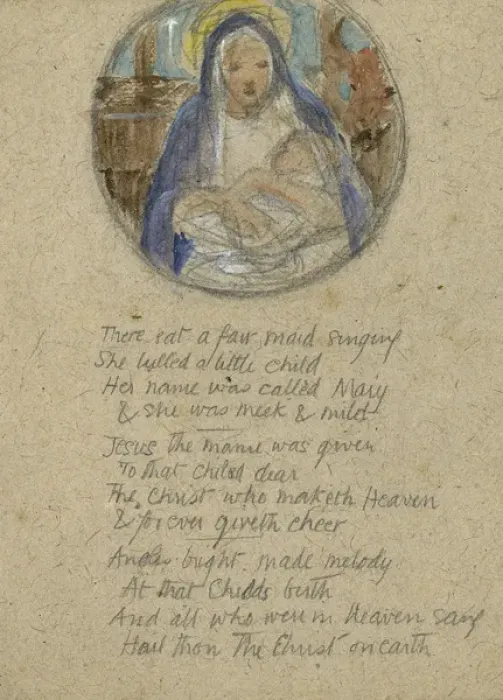 There sat a fair maid singing
She lulled a little child
Her name was called Mary
& she was meek & mild
Jesus the name was given
To that child dear
The Christ who maketh Heaven
& for ever giveth cheer
Angles bright made melody
At that Childs birth
And all who were in Heaven sang
Hail thou The Christ on earth